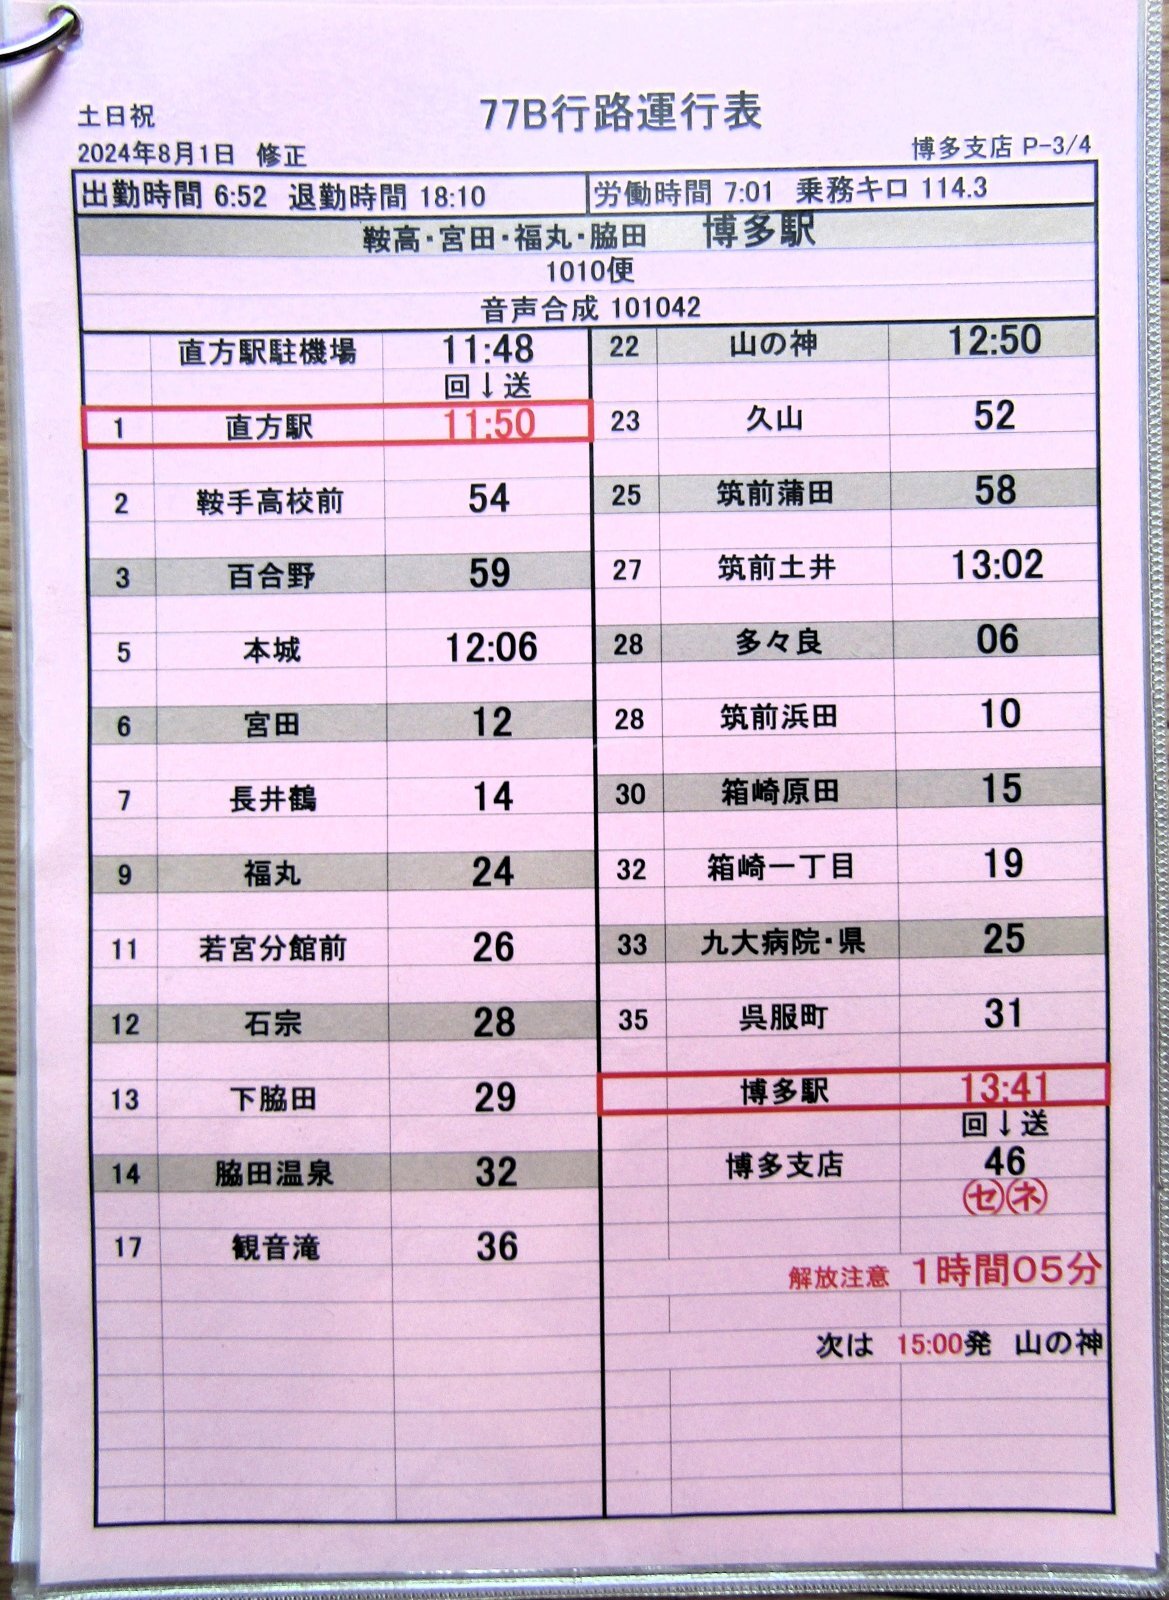 77B行路運行表
土日祝
2024年8月1日 修正
博多支店 P-3/4
出勤時間 6:52 退勤時間 18:10
労働時間 7:01 乗務キロ 114.3
鞍高・宮田・福丸・脇田 博多駅
1010便
音声合成 101042
直方駅駐機場 11:48
回↓送
1 直方駅 11:50
2 鞍手高校前 54
3 百合野 59
5 本城 12:06
6 宮田 12
7 長井鶴 14
9 福丸 24
11 若宮分館前 26
12 石宗 28
13 下脇田 29
14 脇田温泉 32
17 観音滝 36
22 山の神 12:50
23 久山 52
25 筑前蒲田 58
27 筑前土井 13:02
28 多々良 06
28 筑前浜田 10
30 箱崎原田 15
32 箱崎一丁目 19
33 九大病院・県 25
35 呉服町 31
博多駅 13:41
回↓送
博多支店 46
㋝㋧
解放注意 1時間05分
次は 15:00発 山の神